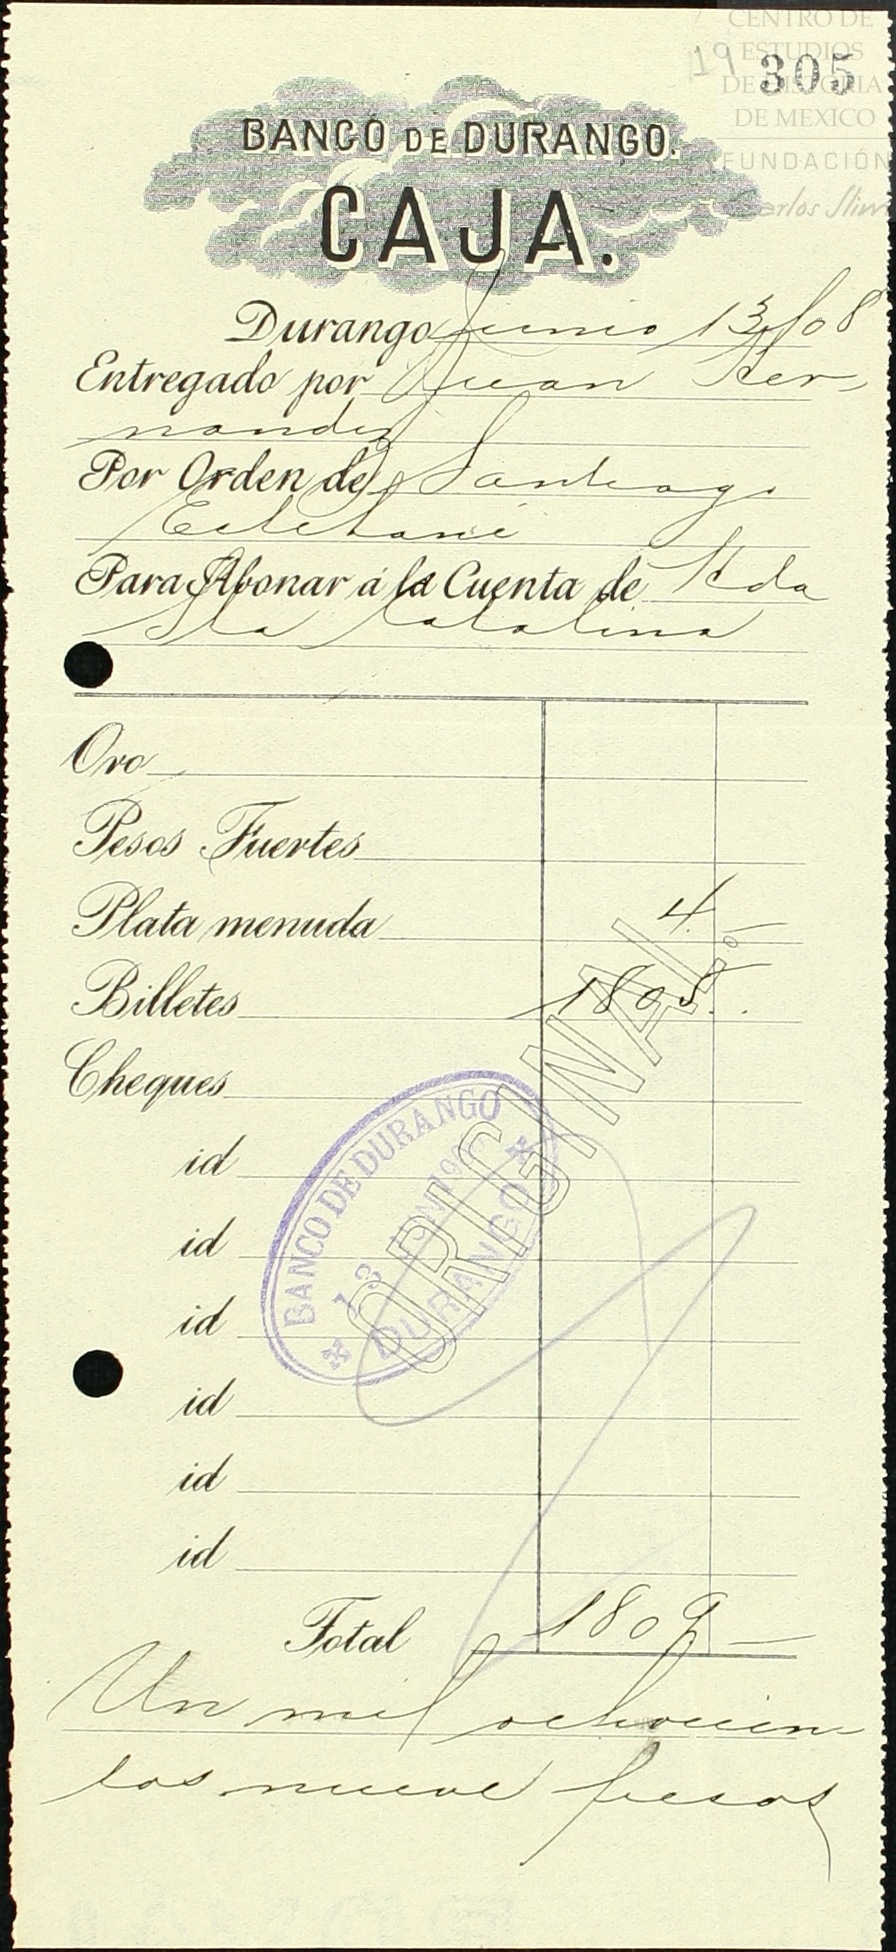 CENTRO DE
ESTUDIOS
DE HISTORIA
DE MEXICO
FUNDACIÓN
Carlos Slim
19 305
BANCO DE DURANGO.
CAJA.
Durango Junio 13/08
Entregado por Juan Her-
nandez
Por Orden de Santiago
Para Abonar á la Cuenta de Hda
Sta Catalina
Oro
Pesos Fuertes
Plata menuda 4. —
Billetes 1805..
Cheques
id
id
id
id
id
id
Total 1809 —
Un mil ochocien
tos nueve pesos
ORIGINAL.
BANCO DE DURANGO
13 JUN 190
DURANGO